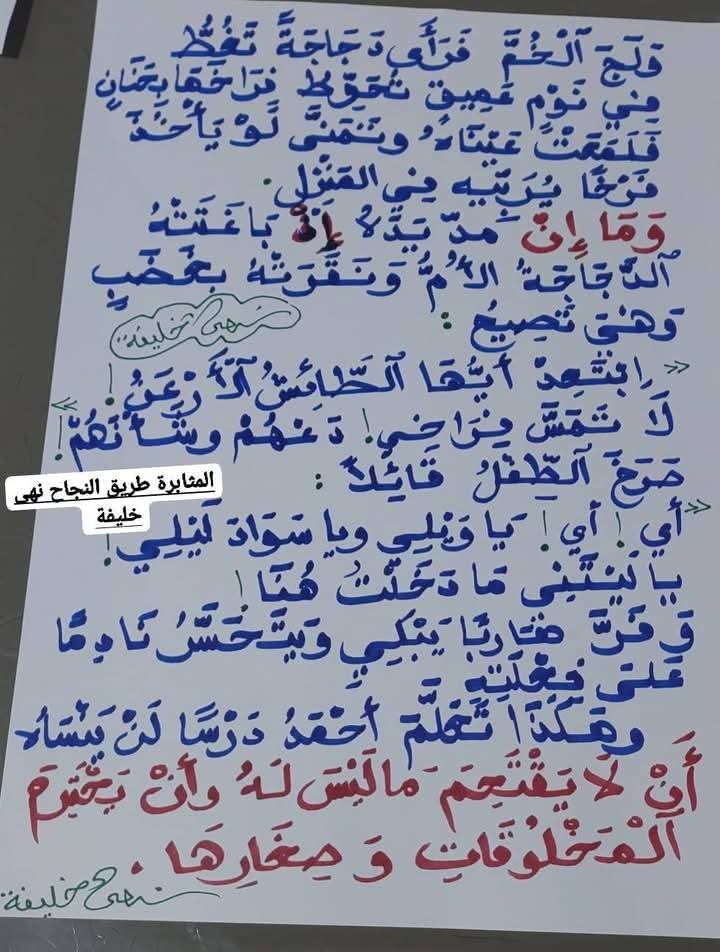 وَلَجَ ٱلْخُمَّ فَرَأَى دَجَاجَةً تَغُطُّ
فِي نَوْمٍ عَمِيقٍ تُحَوِّطُ فِرَاخَهَا بِحَنَانٍ
فَلَمَعَتْ عَيْنَاهُ وتَمَنَّى لَوْ يَأْخُذُ
فَرْخًا يُرَبِّيهِ فِي المَنْزِلِ.
وَمَا إِنْ مدّ يَدَهُ إِذْ بَاغَتَتْهُ
ٱلدَّجَاجَةُ الأُمُّ وَنَقَرَتْهُ بِغَضَبٍ
وَهْيَ تَصِيحُ :
نهى خليفة
« اِبْتَعِدْ أَيُّهَا ٱلطَّائِشُ ٱلْأَرْعَنُ !
لَا تَمَسَّ فِرَاخِي! دَعْهُمْ وشَأْنَهُمْ! »
صَرَخَ ٱلطِّفْلُ قَائِلاً :
المثابرة طريق النجاح نهى
خليفة
« أي ! أي ! يَا وَيْلِي ويا سَوَادَ لَيْلِي !
يا لَيْتَنِي مَا دَخَلْتُ هُنَا !
وَفَرَّ هَارِبًا يَبْكِي وَيَتَحَسَّرُ نَادِمًا
عَلَى فِعْلَتِهِ
وهَكَذَا تَعَلَّمَ أَحْمَدُ دَرْسًا لَنْ يَنْسَاه
أَنْ لَا يَقْتَحِمَ مَا لَيْسَ لَهُ وأَنْ يَحْتَرِمَ
ٱلْمَخْلُوقَاتِ وَ صِغَارِهَا .
نهى خليفة